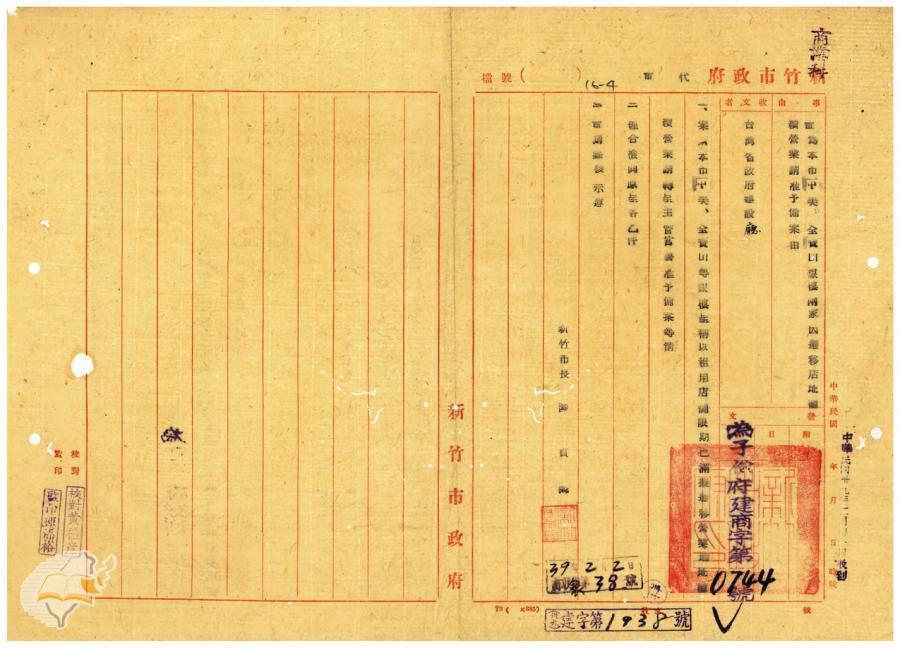 商業科
新竹市政府 代電
號檔( )
16-4
事由
收文者
電為本市中美、金寶山銀樓兩家因遷移店址繼
續營業請准予備案由
台灣省政府建設廳
一、案據本市中美、金寶山等銀樓呈稱以租用店舖限期已滿擬遷移營業地址繼
續營業請轉呈主管官署准予備案等情
二、理合檢同原呈各乙件
三、電請鑒核示遵
新竹市長
中華民國 年 月 日 時
文發
附
日
府建商字第
0744
號
39 2 2
日
38
號
建字第1938號
新竹市政府
校對
監印
校對黃
監印